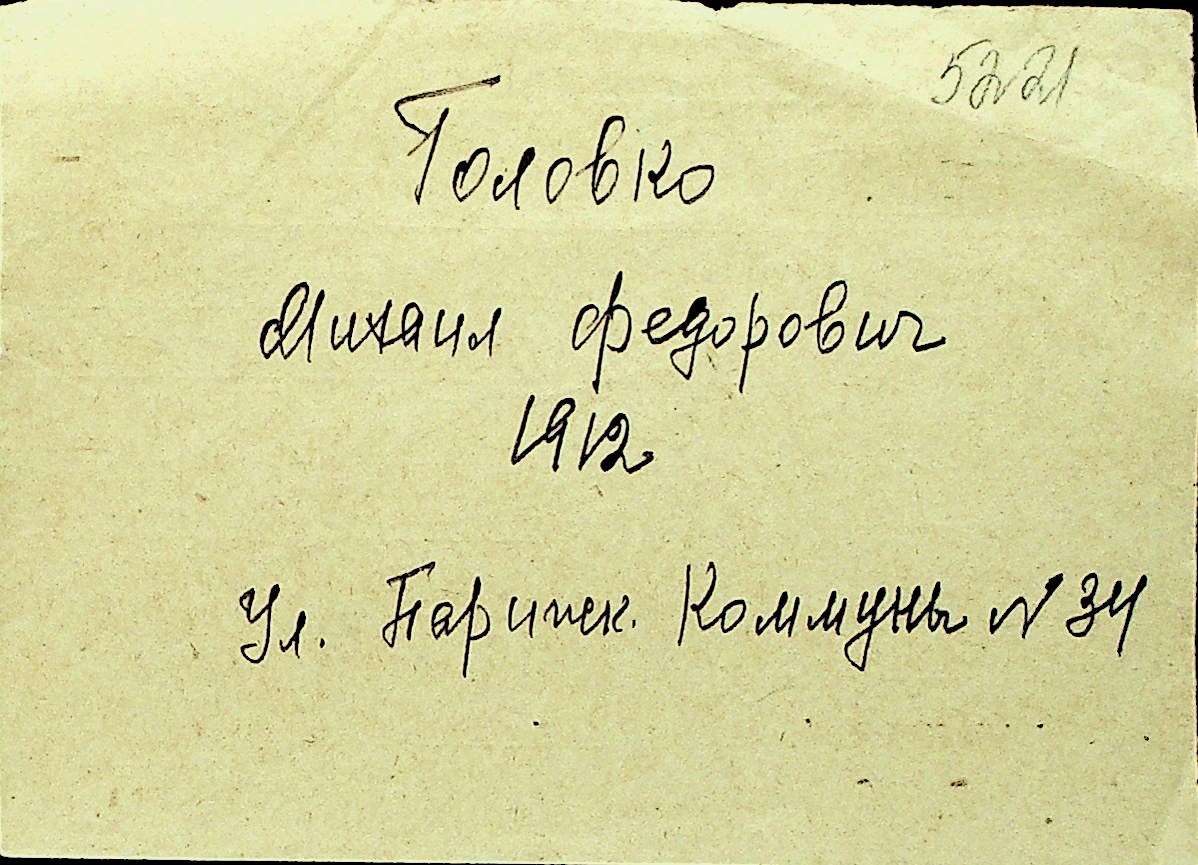 5221
Головко
Михаил Федорович
1912
Ул. Парижск. Коммуны № 34